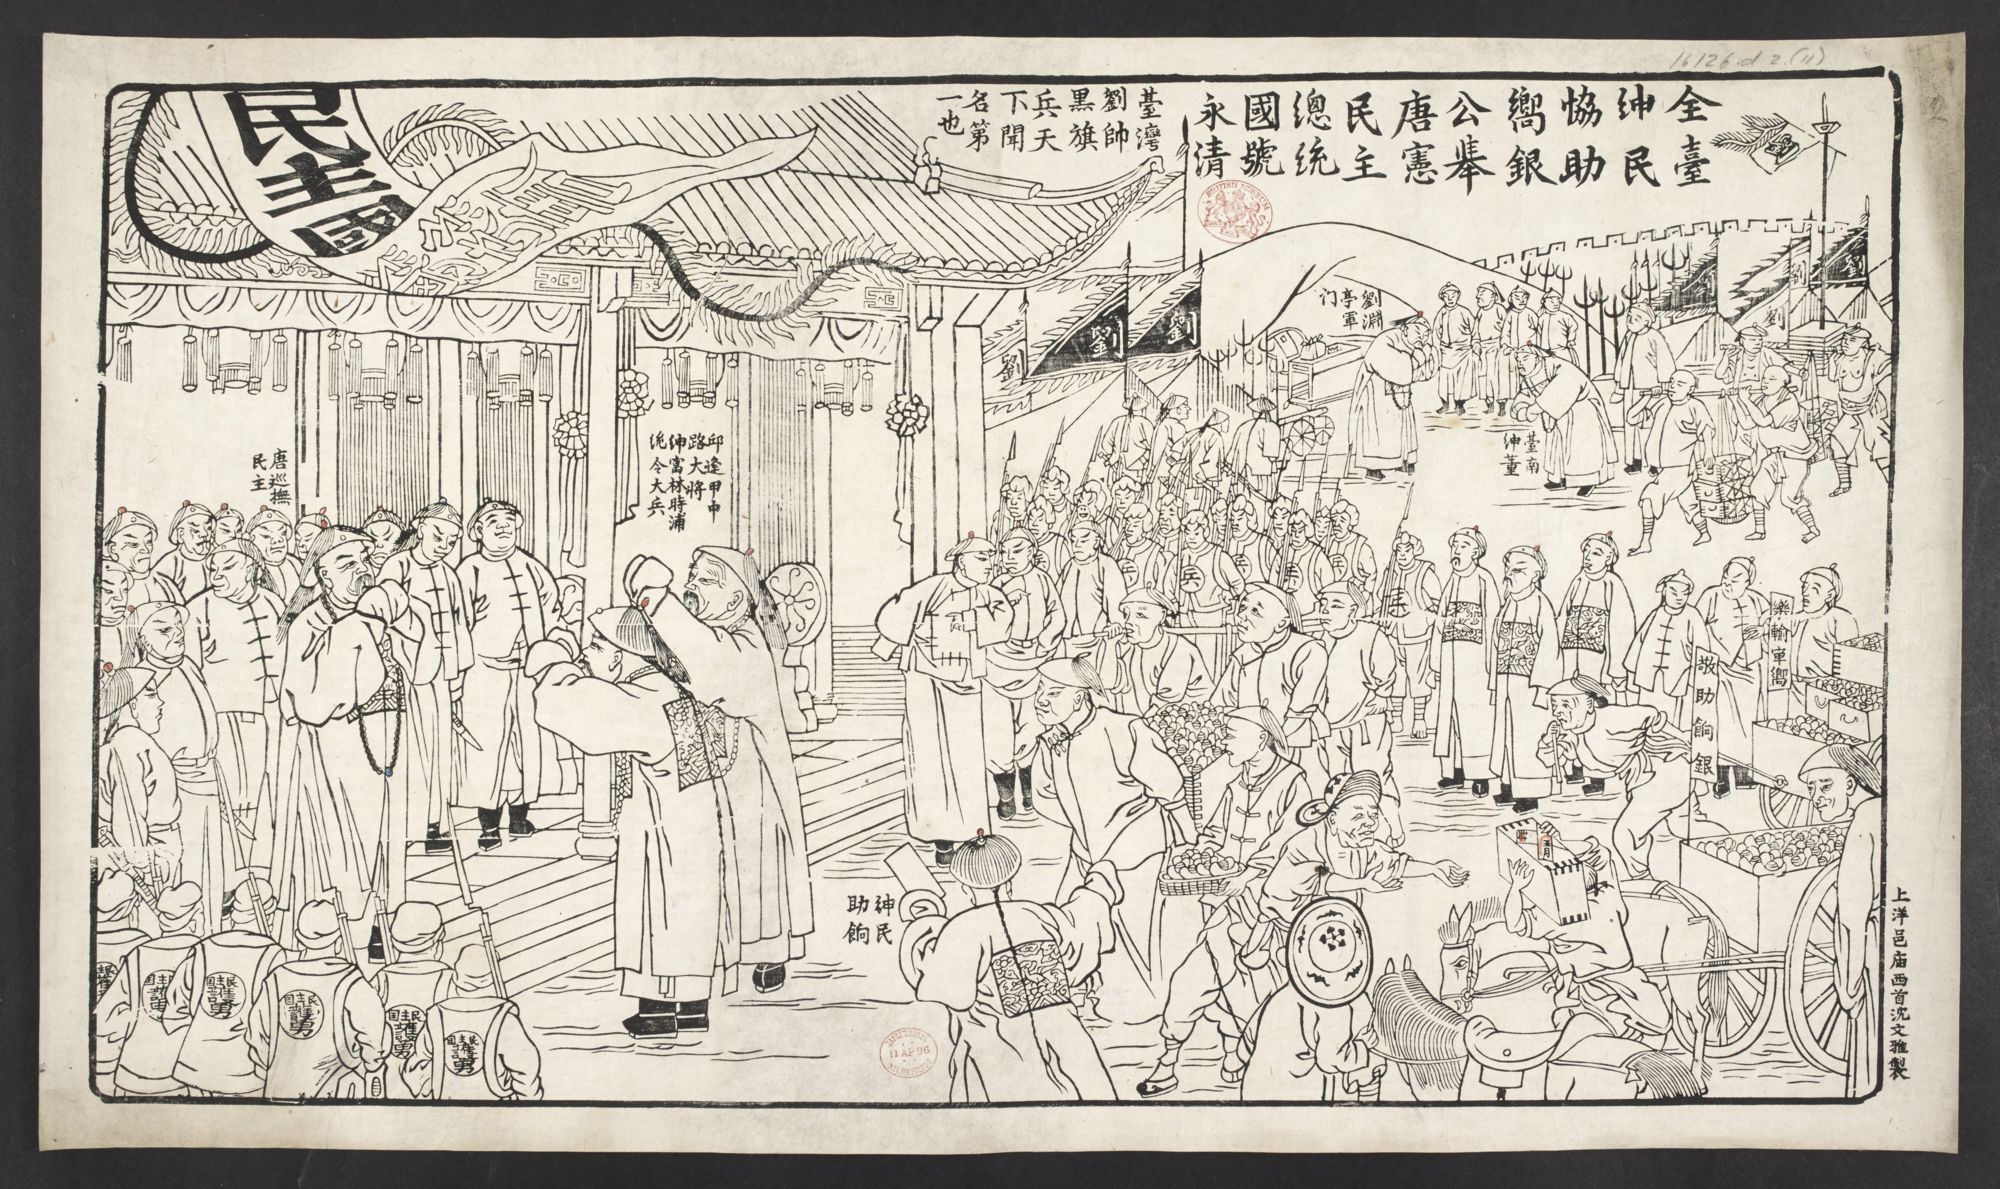 全臺
紳民
恊助
嚮銀
公舉
唐憲
民主
總統
國號
永清
臺灣
劉帥
黑旗
兵天
下聞
名第
一也
民主國
劉淵
亭軍
门
臺南
紳董
唐巡撫
民主
邱逢甲中
路大將
紳富林時浦
統令大兵
紳民
助餉
樂輸軍嚮
敬助餉銀
劉
劉
劉
劉
劉
劉
兵
兵
民主国
護勇
民主国
護勇
民主国
護勇
民主国
護勇
民主国
護勇
上洋邑庙西首沈文雅製
16126.d.2.(11)
BRITISH MUSEUM
11 AP 96